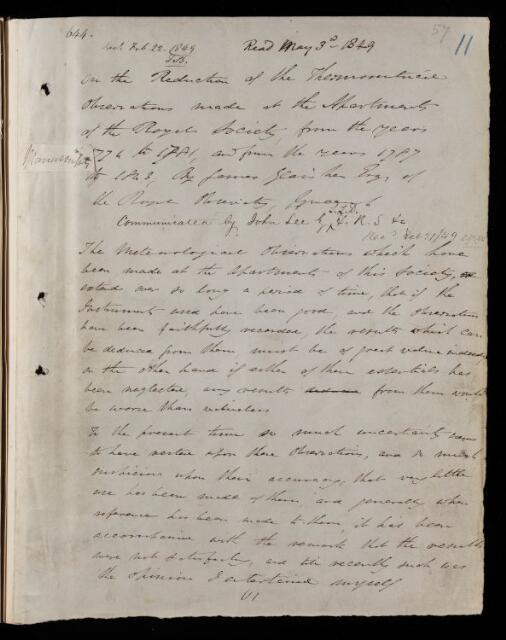 644. 57 11
Recd Feb 22. 1849 Read May 3d 1849
On the Reduction of the Thermometrical
Observations made at the Apartments
of the Royal Society, from the years
1774 to 1781, and from the years 1787
to 1843, By James Glaisher Esq, of
the Royal Observatory, Greenwich
Communicated by John Lee Esq F. R. S &c
The Meteorological Observations which have
been made at the Apartments of this Society,
extend over so long a period of time, that if the
Instruments used have been good, and the observations
have been faithfully recorded, the results which can
be deduced from them, must be of great value indeed;
on the other hand if either of these essentials has
been neglected, any results deduced from them would
be worse than valueless
To the present time so much uncertainty seems
to have rested upon these Observations, and so much
suspicion upon their accuracy, that very little
use has been made of them, and generally when
reference has been made to them, it has been
accompanied with the remark that the results
were not satisfactory, and till recently such was
the opinion I entertained myself